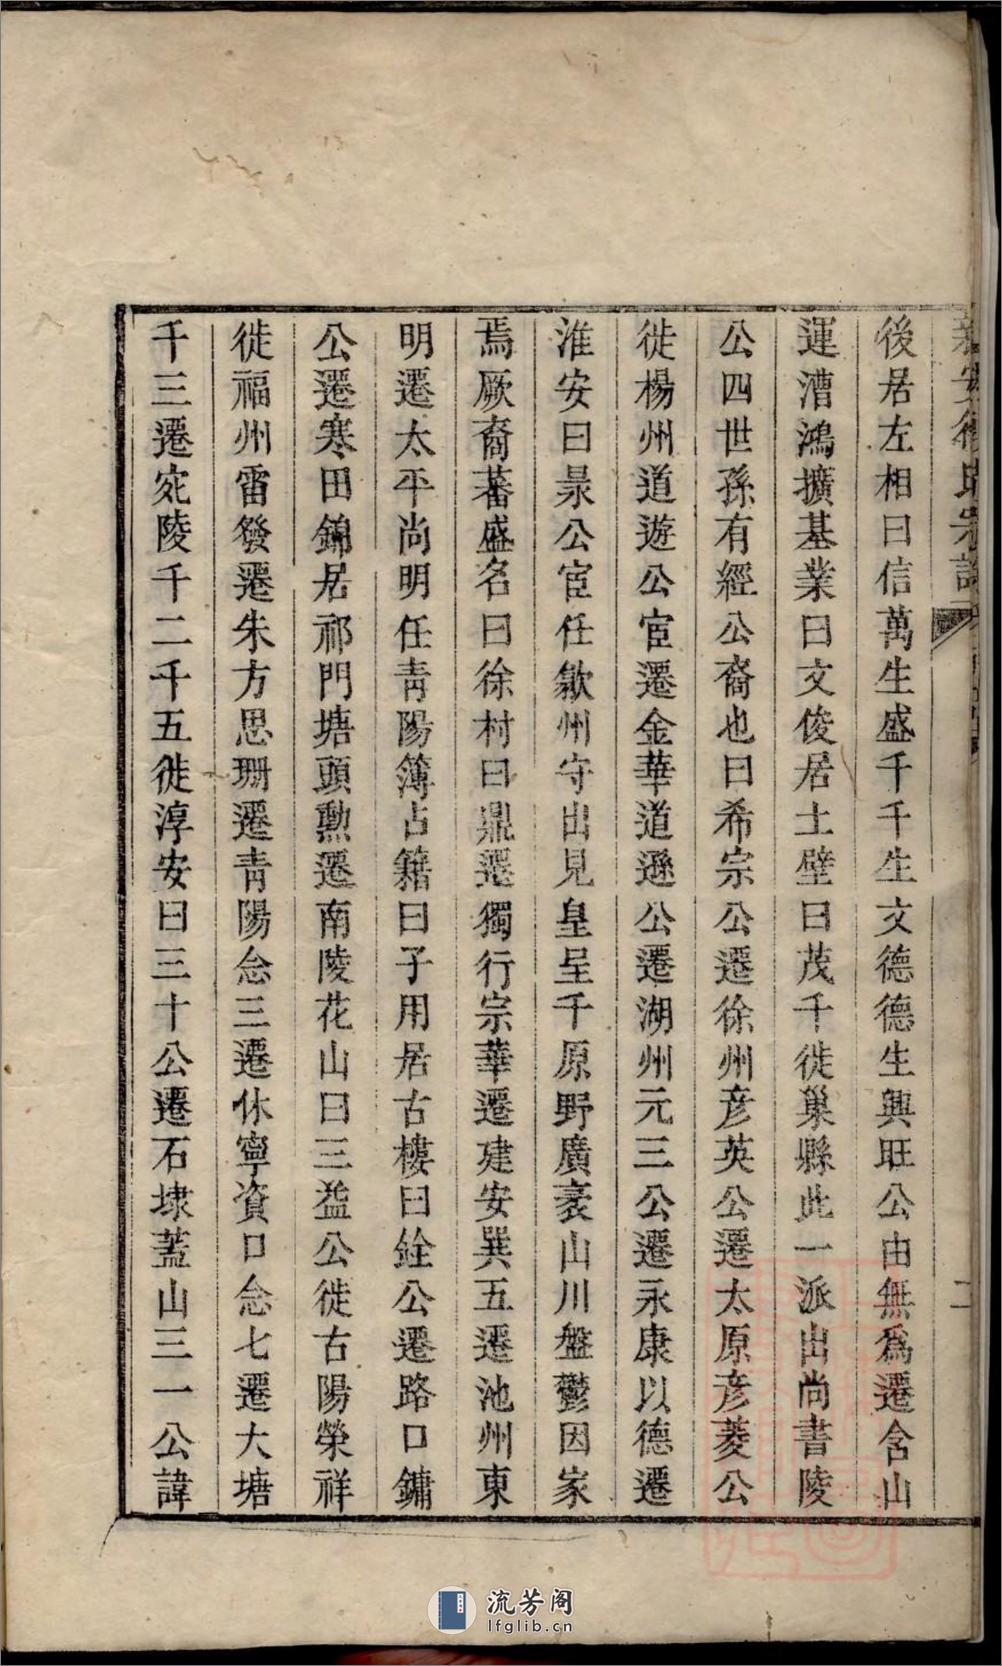 新安徐氏宗譜
二
後居左相曰信萬生盛千千生文德德生興旺公由無爲遷含山
運漕鴻擴基業曰文俊居土壁曰茂千徙巢縣此一派出尚書陵
公四世孫有經公裔也曰希宗公遷徐州彥英公遷太原彥菱公
徙楊州道遊公宦遷金華道遜公遷湖州元三公遷永康以德遷
淮安曰景公宦任歙州守出見皇呈千原野廣袤山川盤鬱因家
焉厥裔蕃盛名曰徐村曰鼎遷獨行宗華遷建安巽五遷池州東
明遷太平尚明任青陽簿占籍曰子用居古樓曰銓公遷路口鏞
公遷寒田錦居祁門塘頭勲遷南陵花山曰三益公徙古陽榮祥
徙福州雷發遷朱方思珊遷青陽念三遷休寧資口念七遷大塘
千三遷宛陵千二千五徙淳安曰三十公遷石埭蓋山三一公諱
流芳阁
lfglib.cn